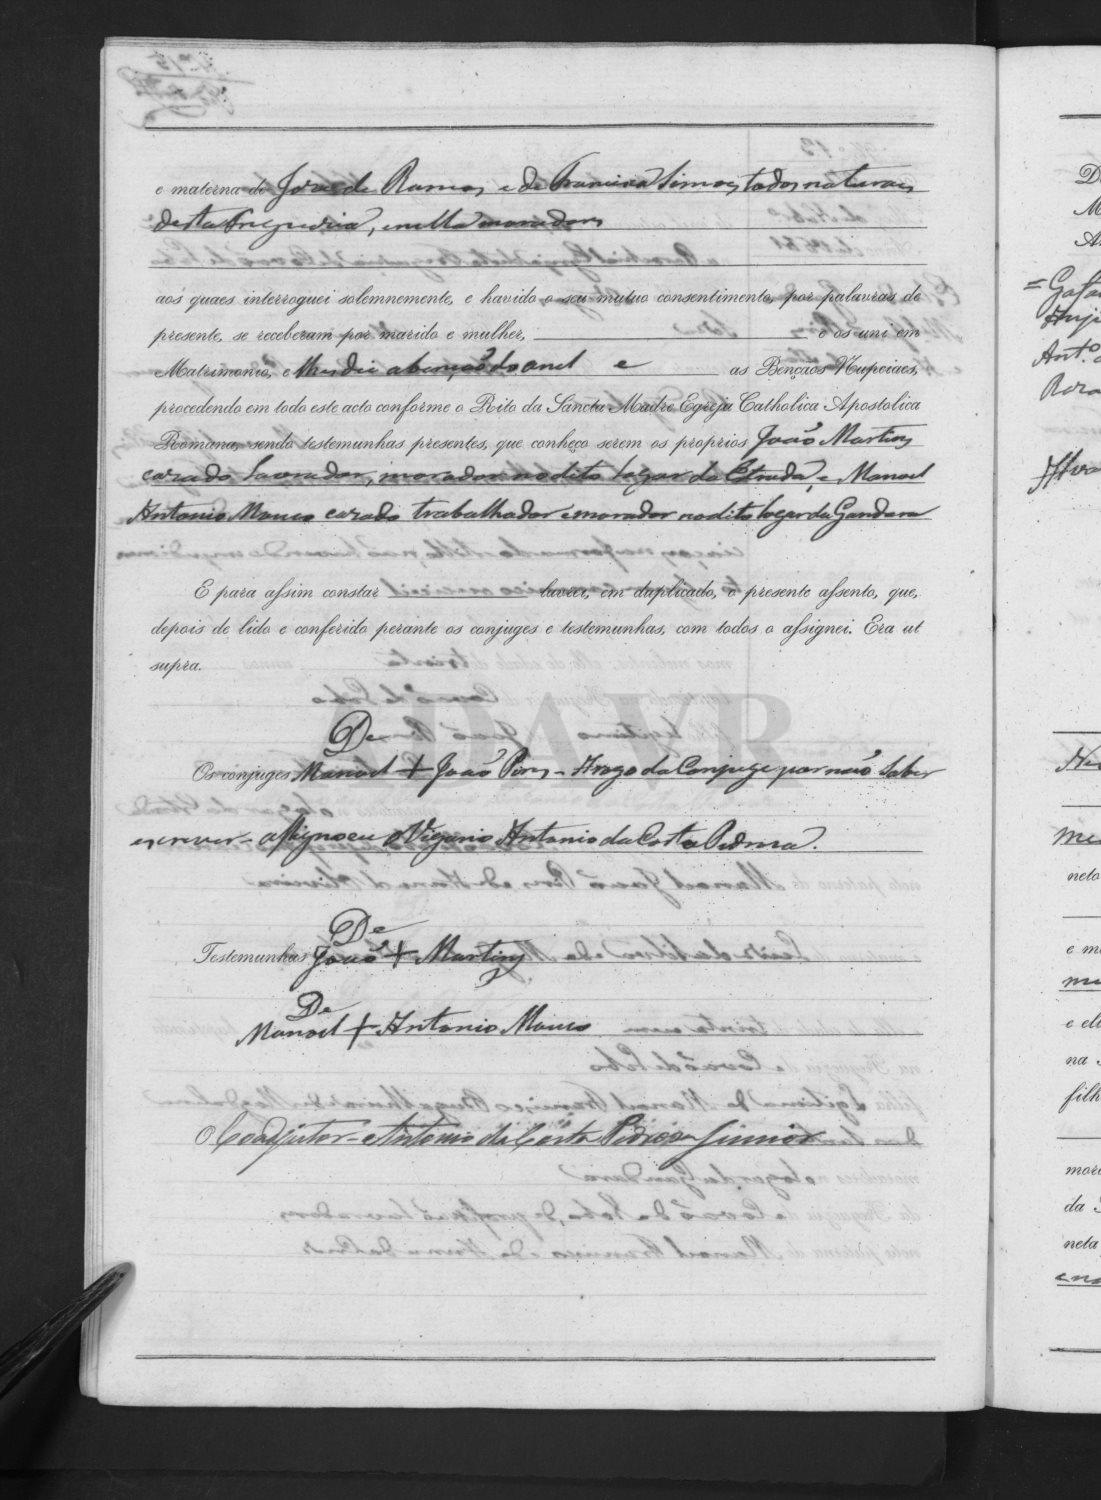 e materna de José de Ramos, e de Francisca Simoes, todos naturaes
desta Freguezia, e nella moradores
aos quaes interroguei solemnemente, e havido o seu mutuo consentimento, por palavras de
presente, se receberam por marido e mulher, e os uni em
Matrimonio, e lhes dei a benção do anel e as Bençãos Nupciaes,
procedendo em todo este acto conforme o Rito da Sancta Madre Egreja Catholica Apostolica
Romana, sendo testemunhas presentes, que conheço serem os proprios João Martins
cazado Lavrador, morador no dito lugar da Estrada, e Manoel
Antonio Mouco cazado trabalhador e morador no dito lugar da Gandara
E para assim constar lavrei, em duplicado, o presente assento, que,
depois de lido e conferido perante os conjuges e testemunhas, com todos o assignei. Era ut
supra.
De
Os conjuges Manoel + João Pires - Arogo da Conjuge por não saber
escrever - assignoeu o Vigario Antonio da Costa Pedroza.
De
Testemunhas João + Martins
De
Manoel + Antonio Mouco
O Coadjutor - Antonio da Costa Pedroza Junior
ADAVR